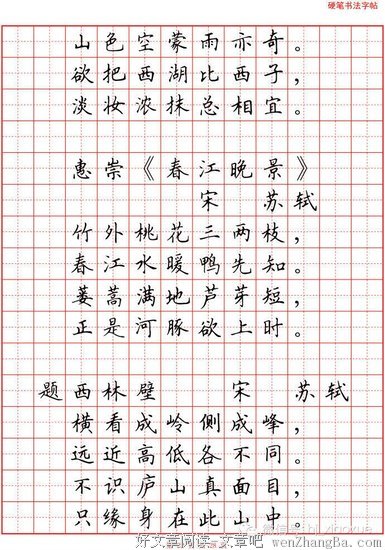 硬笔书法字帖
山色空蒙雨亦奇。
欲把西湖比西子，
淡妆浓抹总相宜。
惠崇《春江晚景》
宋 苏轼
竹外桃花三两枝，
春江水暖鸭先知。
蒌蒿满地芦芽短，
正是河豚欲上时。
题西林壁 宋 苏轼
横看成岭侧成峰，
远近高低各不同。
不识庐山真面目，
只缘身在此山中。
好文章阅读-文章吧 wenZhangBa.com